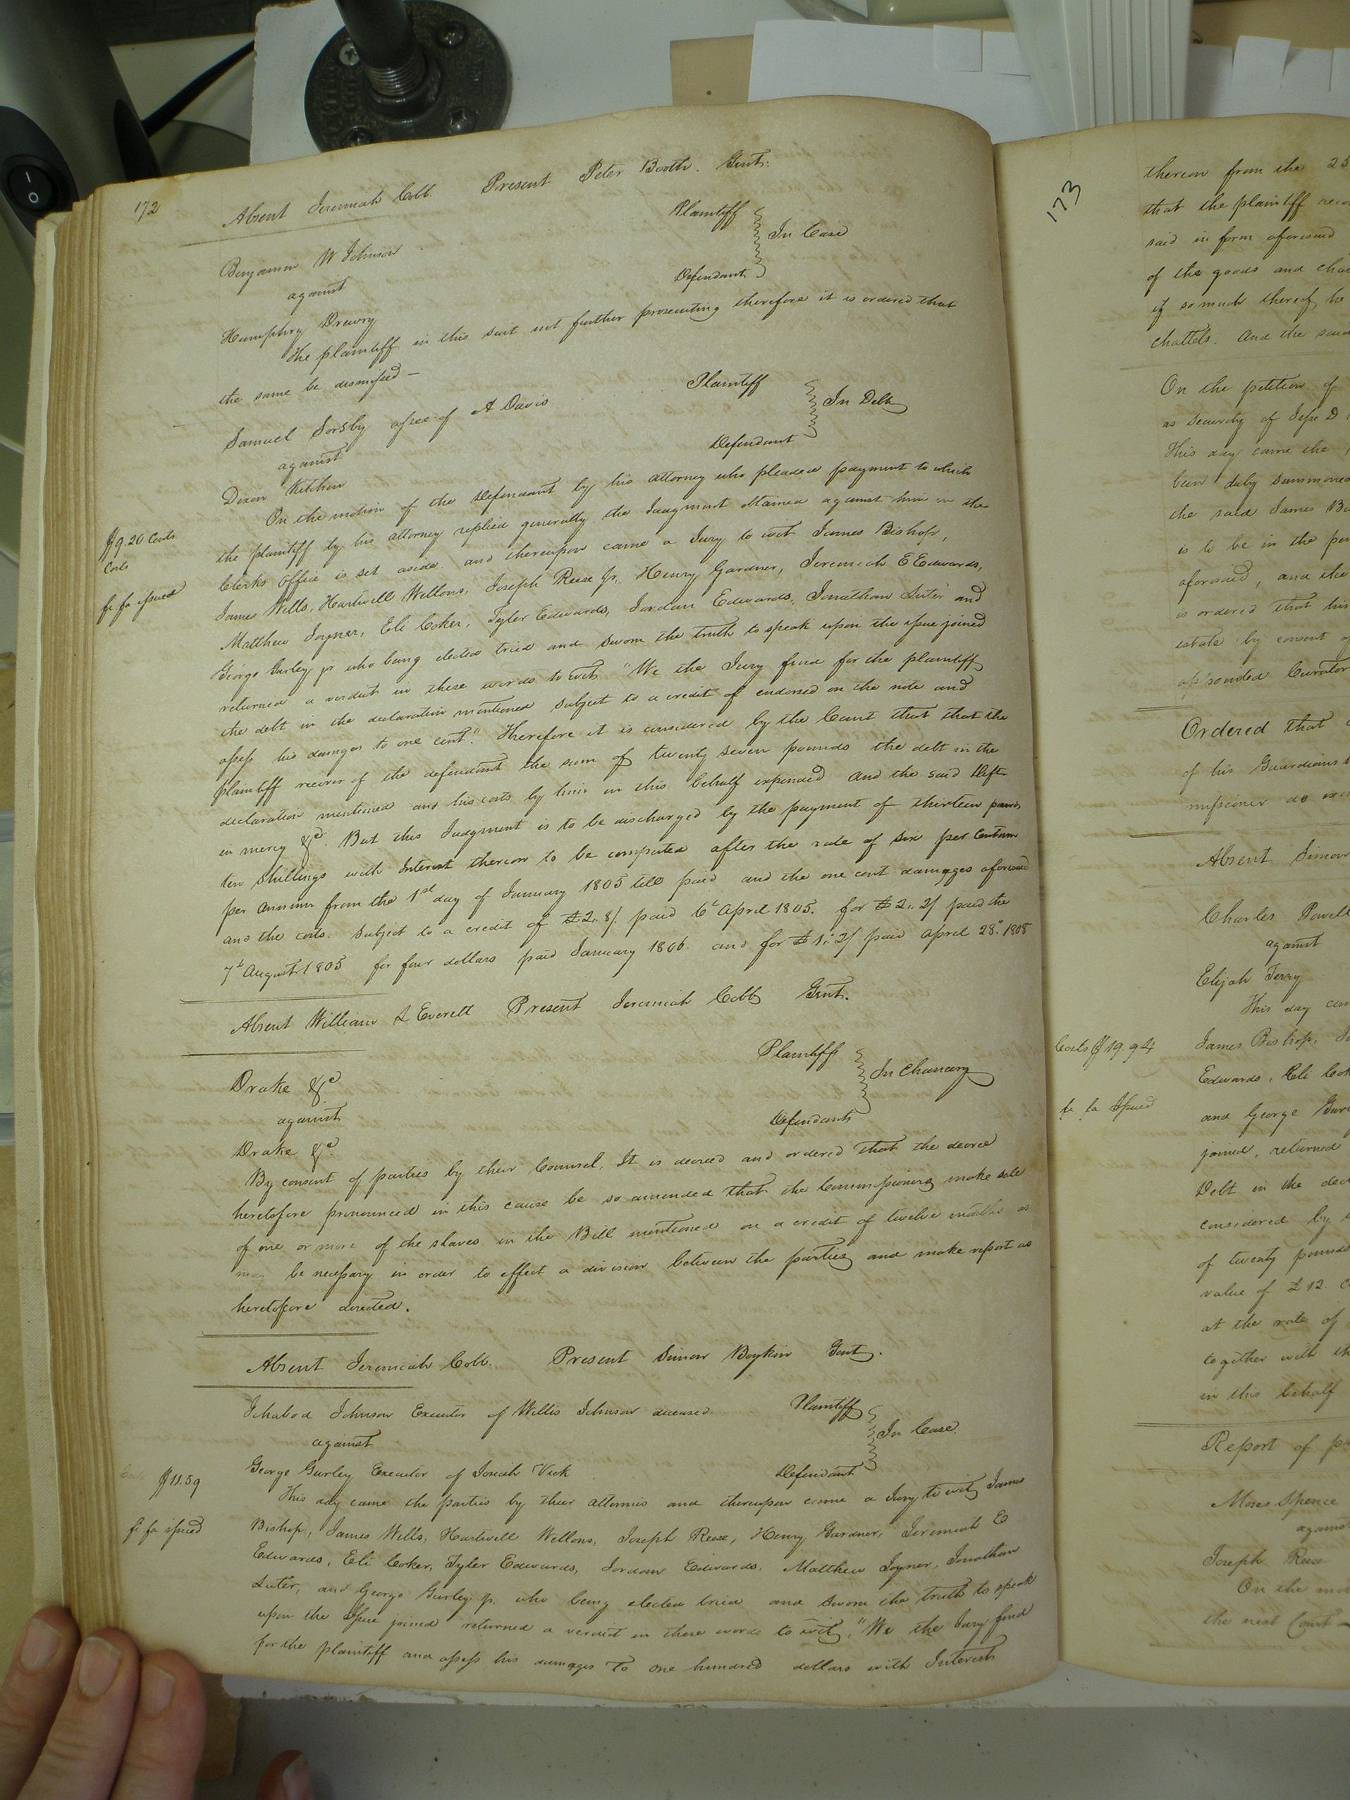 172
Absent Jeremiah Cobb. Present Peter Booth. Gent.
Benjamin W Johnson Plaintiff
against In Case
Humphry Drewry Defendant
The plaintiff in this suit not further prosecuting therefore it is ordered that
the same be dismissed —
Samuel Sorsby assee of A Davis Plaintiff
against In Debt
Dixon Kitchen Defendant
On the motion of the Defendant by his attorney who pleaded payment to which
the plaintiff by his attorney replied generally the Judgment obtained against him in the
$9.20 Costs
Costs
Clerks office is set aside and thereupon came a Jury to wit James Bishop,
fi fa issued
James Wills, Hartwell Wellons, Joseph Reese Jr. Henry Gardner, Jeremiah E Edwards,
Matthew Joyner, Eli Coker, Tyler Edwards, Jordan Edwards, Jonathan Suter and
George Gurley jr who being elected tried and sworn the truth to speak upon the issue joined
returned a verdict in these words to wit. "We the Jury find for the plaintiff
the debt in the declaration mentioned subject to a credit of endorsed on the note and
assess his damages to one cent". Therefore it is considered by the Court that that the
plaintiff recover of the defendant the sum of twenty seven pounds the debt in the
declaration mentioned and his costs by him in this behalf expended and the said Deft
in mercy &c. But this Judgment is to be discharged by the payment of thirteen pounds
ten shillings with Interest thereon to be computed after the rate of six per Centum
per Annum from the 1st day of January 1805 till paid and the one cent damages aforesaid
and the costs. Subject to a credit of £2.8/. paid 6t April 1805. for £2.2/ paid the
7t August 1805 for four dollars paid January 1806. and for £1.2/ paid april 28t 1808
Absent William L Everett Present Jeremiah Cobb Gent.
Drake &c Plaintiffs
against In Chancery
Drake &c. Defendants
By consent of parties by their Counsel, It is decreed and ordered that the decree
heretofore pronounced in this cause be so amended that the Commissioners make sale
of one or more of the slaves in the Bill mentioned on a credit of twelve months as
may be necessary in order to effect a division between the parties and make report as
heretofore directed.
Absent Jeremiah Cobb. Present Simon Boykin Gent.
Ichabod Johnson Executor of Willis Johnson deceased Plaintiff
against In Case.
George Gurley Executor of Josiah Vick Defendant
$11.59
This day came the parties by their attornies and thereupon came a Jury to wit James
fi fa issued
Bishop, James Wills, Hartwell Wellons, Joseph Reese, Henry Gardner, Jeremiah E
Edwards, Eli Coker, Tyler Edwards, Jordan Edwards, Matthew Joyner, Jonathan
Suter, and George Gurley jr. who being elected tried and sworn the truth to speak
upon the Issue joined returned a verdict in these words to wit, "We the Jury find
for the plaintiff and assess his damages to one hundred dollars with Interest
173
thereon from the 25
that the plaintiff
said in form aforesaid
of the goods and
if so much thereof he
chattels. And the said
On the petition of
as security of
This day came the
been duly summoned
the said James
is to be in the
aforesaid, and the
is ordered that his
estate by consent
appointed Curator
Ordered that
of his Guardians
missioner do
Absent Simon
Charles Powell
against
Elijah Terry
This day
Costs $19.94
James Bishop,
Edwards, Eli
fi fa Issued
and George
joined, returned
Debt in the
considered by
of twenty pounds
value of £12.
at the rate of
together with
in this behalf
Report of
Moses Spence
against
Joseph Reese
On the
the next Court